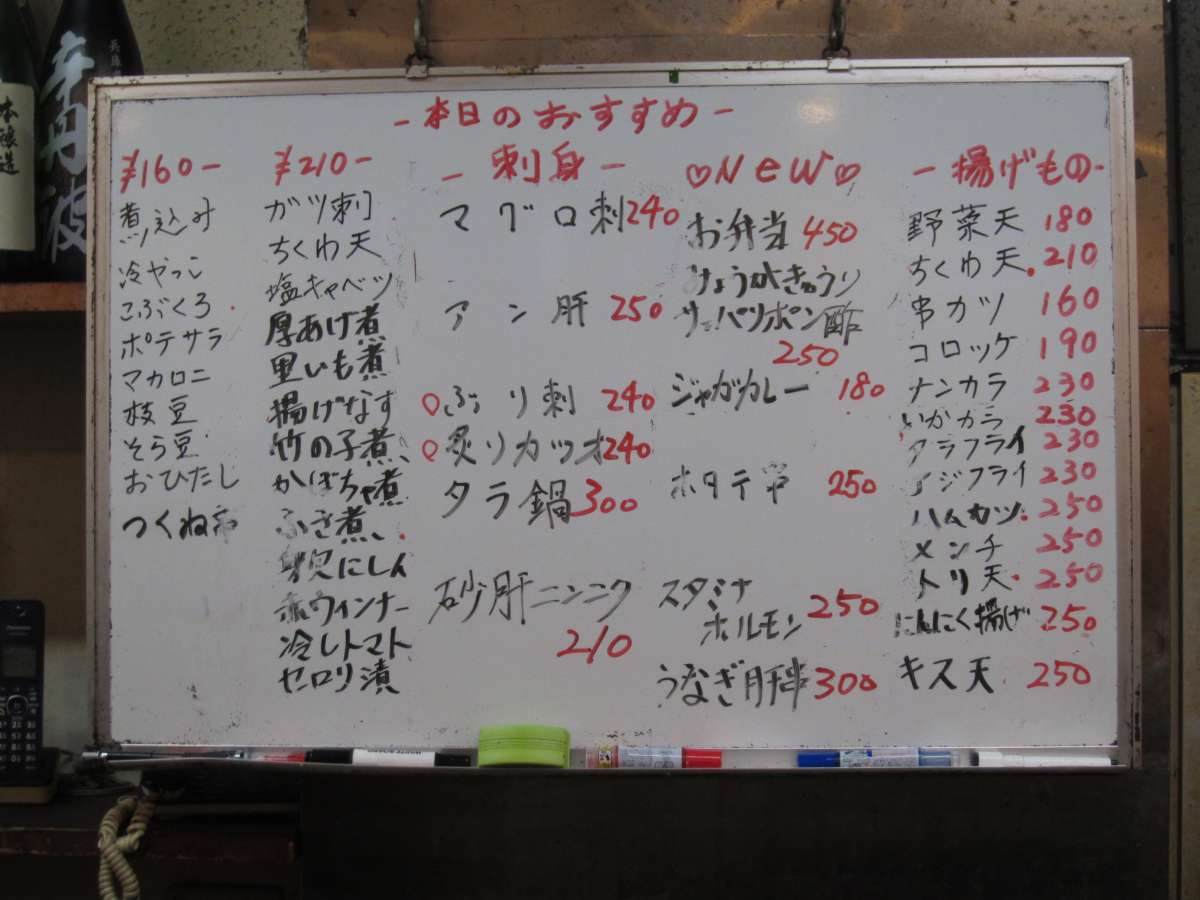 - 本日のおすすめ -
¥160-
煮込み
冷やっこ
こぶくろ
ポテサラ
マカロニ
枝豆
そら豆
おひたし
つくね串
¥210-
ガツ刺
ちくわ天
塩キャベツ
厚あげ煮
里いも煮
揚げなす
竹の子煮
かぼちゃ煮
ふき煮
身欠にしん
赤ウィンナー
冷しトマト
セロリ漬
- 刺身 -
マグロ刺 240
アン肝 250
ぶり刺 240
炙りカツオ 240
タラ鍋 300
砂肝ニンニク
210
♡NeW♡
お弁当 450
みょうがきゅうり
サッパリポン酢
250
ジャガカレー 180
ホタテ串 250
スタミナ
ホルモン 250
うなぎ肝串 300
- 揚げもの-
野菜天 180
ちくわ天 210
串カツ 160
コロッケ 190
ナンカラ 230
いかカラ 230
タラフライ 230
アジフライ 230
ハムカツ 250
メンチ 250
トリ天 250
にんにく揚げ 250
キス天 250
辛丹波
本醸造